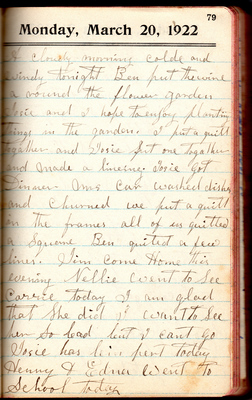 79
Monday, March 20, 1922
A cloudy morning colde and
windy tonight Ben put the wire
a round the flower garden
Josie and I hope to enjoy planting
things in the garden. I put a quilt
together and Josie put one together
and made a lineing. Josie got
Dinner Mrs Car washed dishes
and Churned we put a quilt
in the frames all of us quilted
a Square Ben quilted a few
lines. Jim come Home this
evening Nellie went to See
Carrie today I am glad
that She did I want to See
her So bad but I cant go
Josie has bin here today
Henny & Edna went to
School today